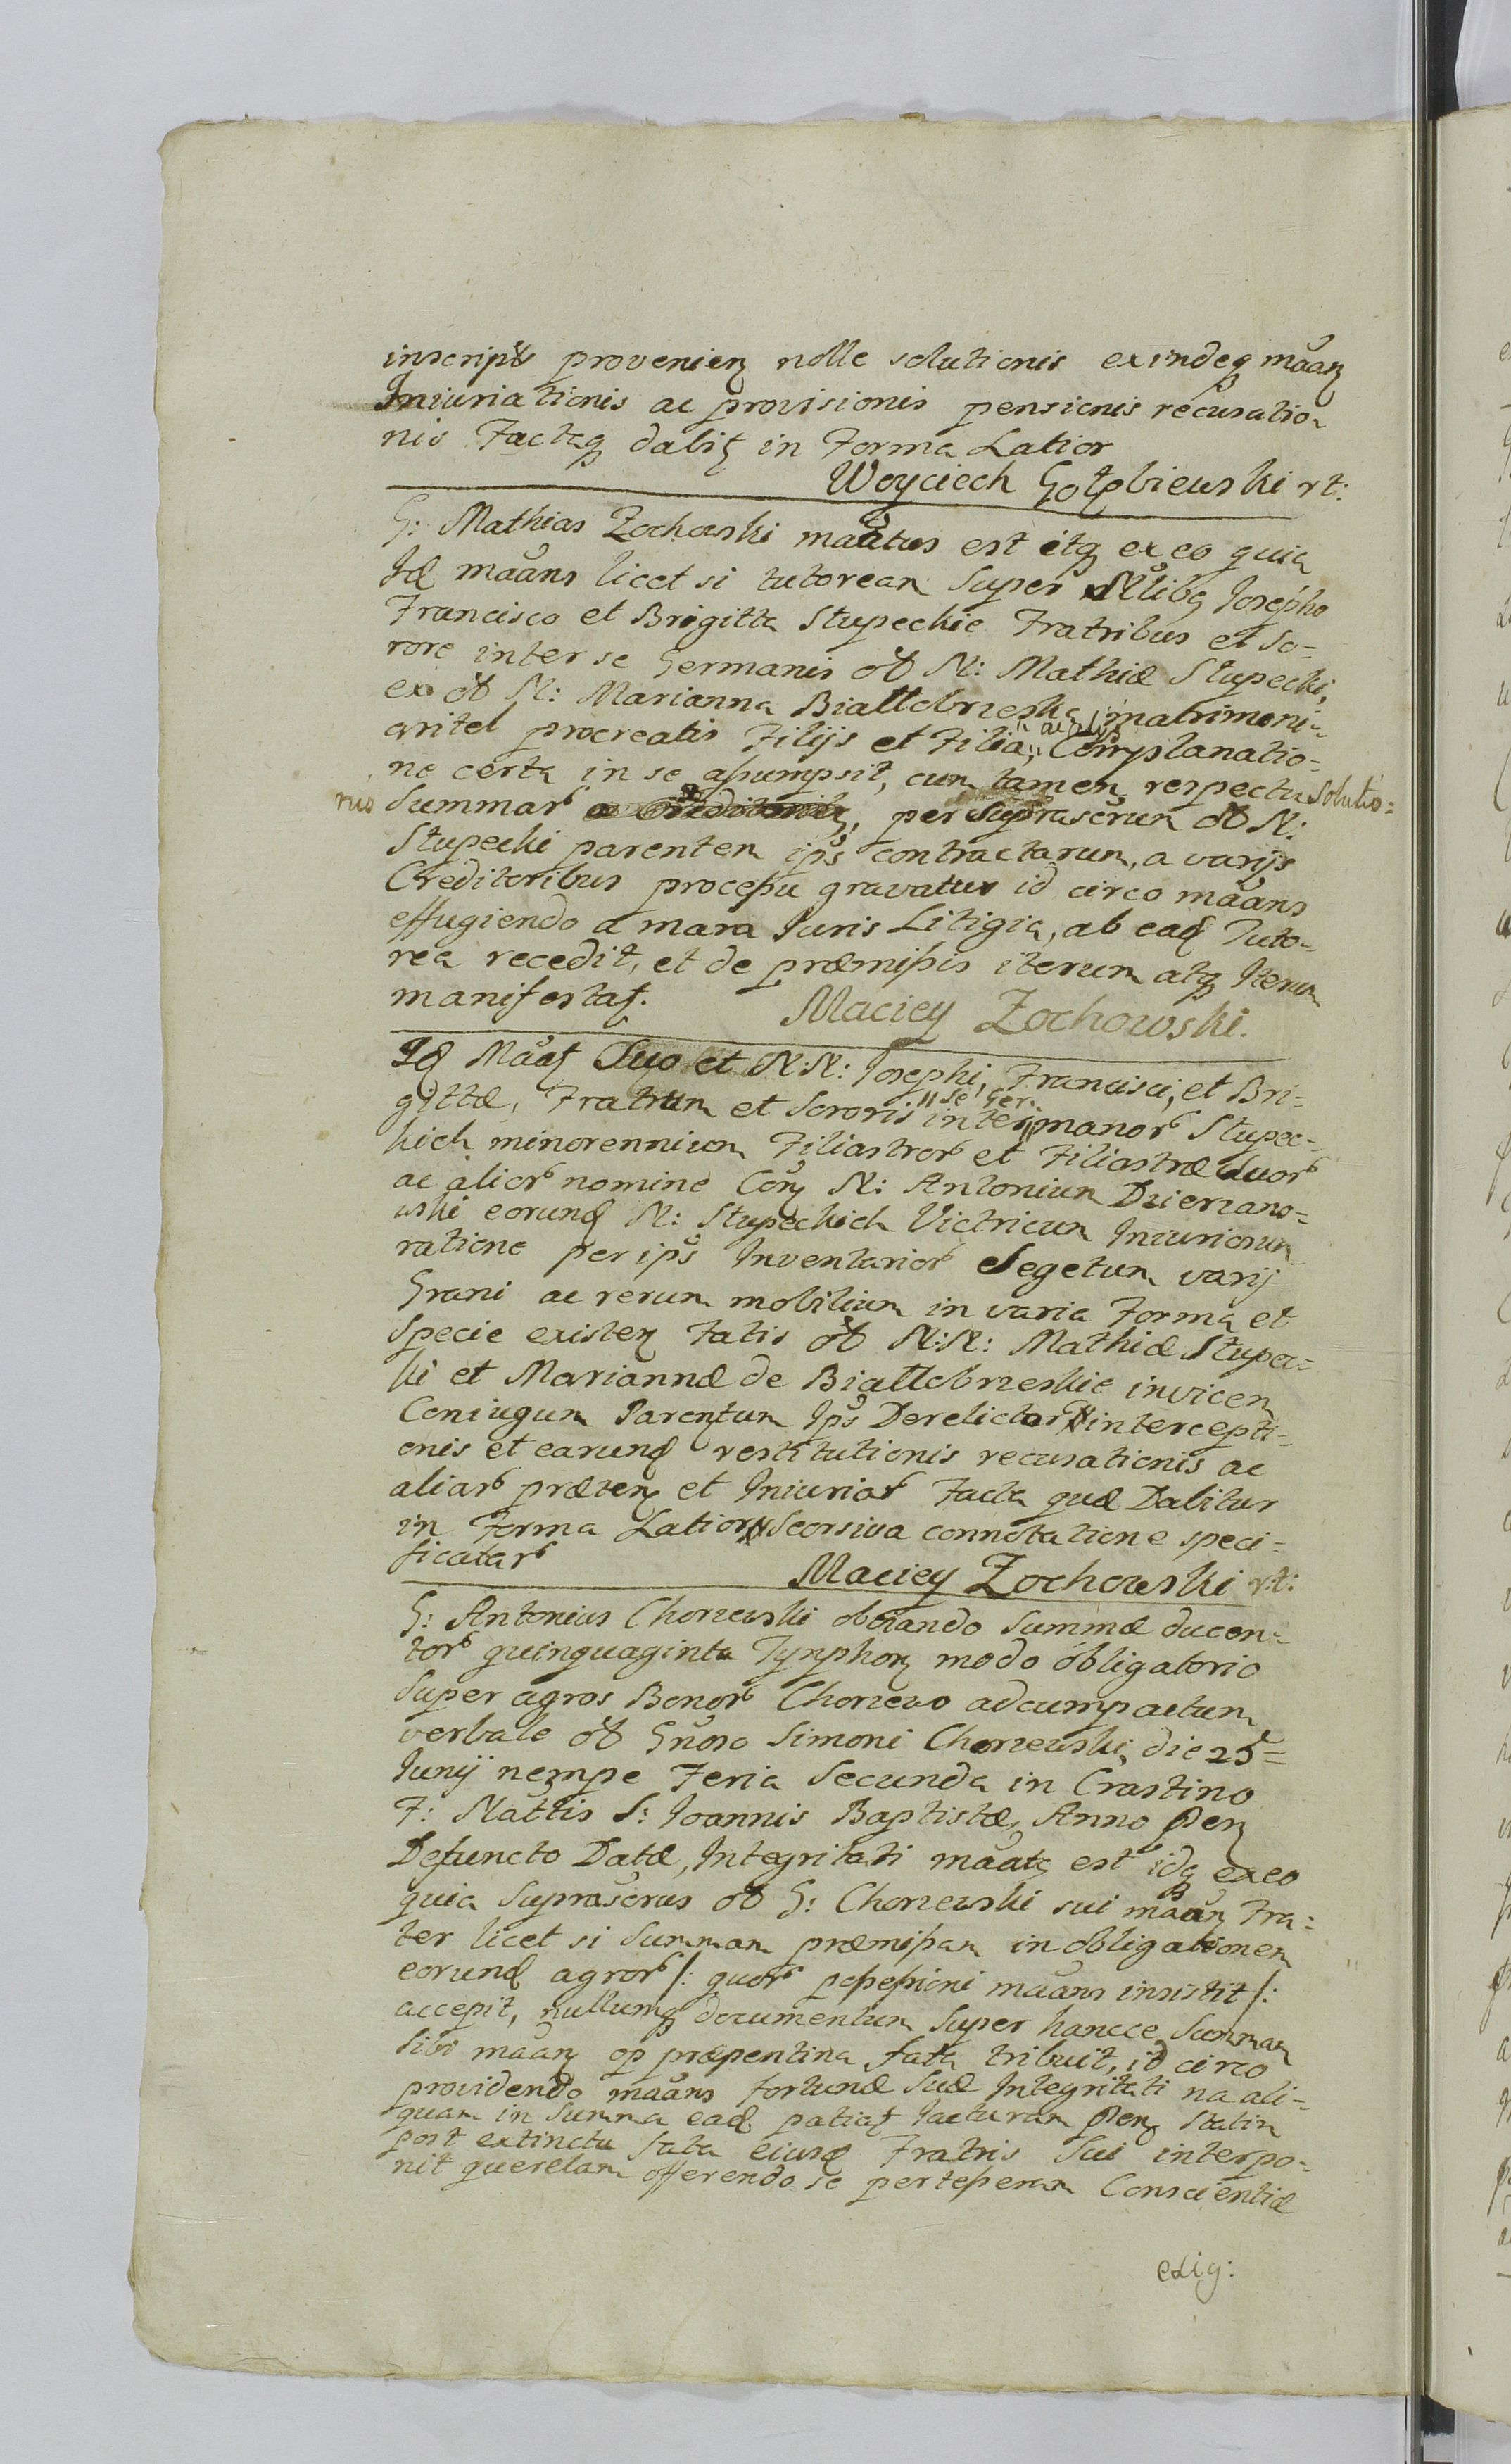 inscripts provenien nolle solutionis exindeq maan
Iniuriationis ac provisionis pensionis recusatio-
nis Factaq dabit in Forma Latior
Woyciech Gołębiewski rt:
G: Mathias Zochowski maātus est itq ex eo quia
Id maāns licet si tutoream super Nlibq Josepho
Francisco et Brigitta Stupeckie Fratribus et So-
rore inter se Germanis ol N: Mathiæ Stupecki,
ex ol N: Marianna Białłobrzeska matrimoni-
aritel procreatis Filijs et Filia, Complanatio-
ne certa in se assumpsit, cum tamen respectu solutio=
nis Summar per suprascrum ol N:
Stupecki parentem ips contractarum, a varijs
Creditoribus processu gravatur id circo maāns
effugiendo a mara Juris Litigia, ab ead Tuto-
rea recedit, et de præmissis iterum atq Iterum
manifestat. Maciey Zochowski.
Id Maat Suo et N:N: Josephi, Francisci, et Bri=
gittæ, Fratrum et Sororis inter "se Ger" manor Stupec=
kich minorennium Filiastror et Filiastræ suor
ac alior nomine Con N: Antonium Dzierzano=
wski eorund N: Stupeckich Victricum Iniuriorum
ratione per ips Inventarior Segetum varij
Grani ac rerum mobilium in varia Forma et
specie existen fatis ol N:N: Mathiæ Stupec=
ki et Mariannæ de Białłobrzeskie invicem
Coniugum Parentum Ips Derelictar intercepti-
onis et earund restitutionis recusationis ac
aliar præten et Iniuriar Facta quæ Dabitur
in Forma Latior Seorsiva connotatione speci=
ficatar Maciey Zochowski rt:
G: Antonius Chorzewski obviando summæ ducen-
tor quinquaginta Tynphon modo obligatorio
super agros Bonor Chorzewo adcumpactum
verbale ol Gnoso Simoni Chorzewski, die 25=
Junij nempe Feria Secunda in Crastino
F: Nattis S: Joannis Baptistæ, Anno pen
Defuncto Datæ, Integritati maatq est idq ex eo
quia suprascrus ol G: Chorzewski sui maan Fra=
ter licet si summam præmissam in obligationem
eorund agror /: quor possessioni maāns insistit /:
accepit, nullumq documentum super hancce summam
sibi maan op præpentina fata tribuit, id circo
providendo maāns fortunæ suæ Integritati na ali-
quam in summa ead patiat iacturam pen statim
post extincta fata eiusd Fratris sui interpo-
nit querelam offerendo se per tesseram Conscientiæ
exig: